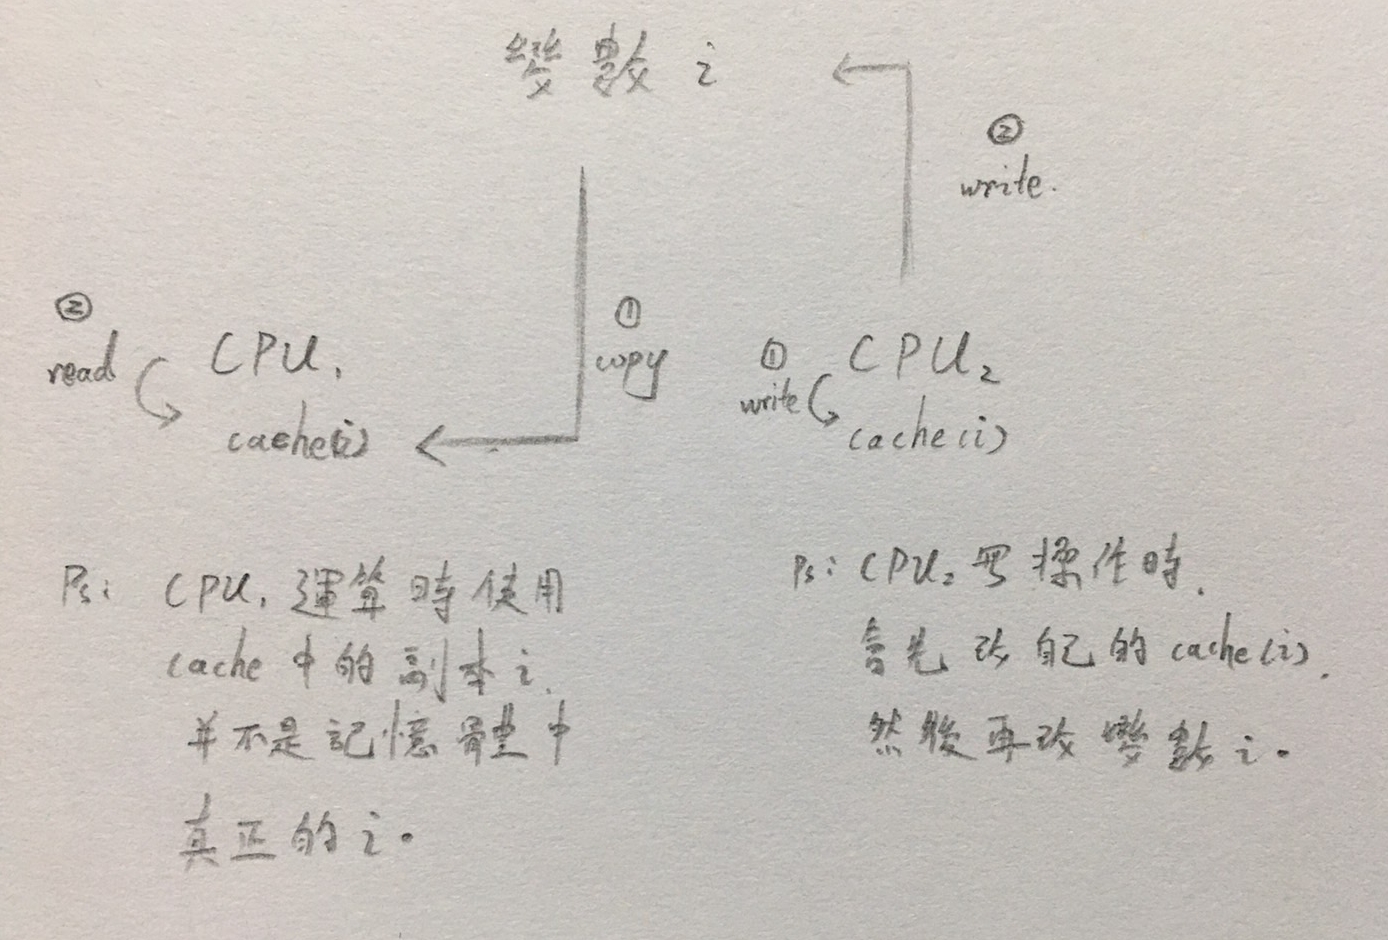 變數 i
②
write.
②
read
CPU₁
cache(i)
①
copy
①
write
CPU₂
cache(i)
Ps: CPU₁ 運算時使用
cache 中的副本 i,
并不是記憶體中
真正的 i。
Ps: CPU₂ 寫操作時,
會先改自己的 cache(i),
然後再改變數 i。